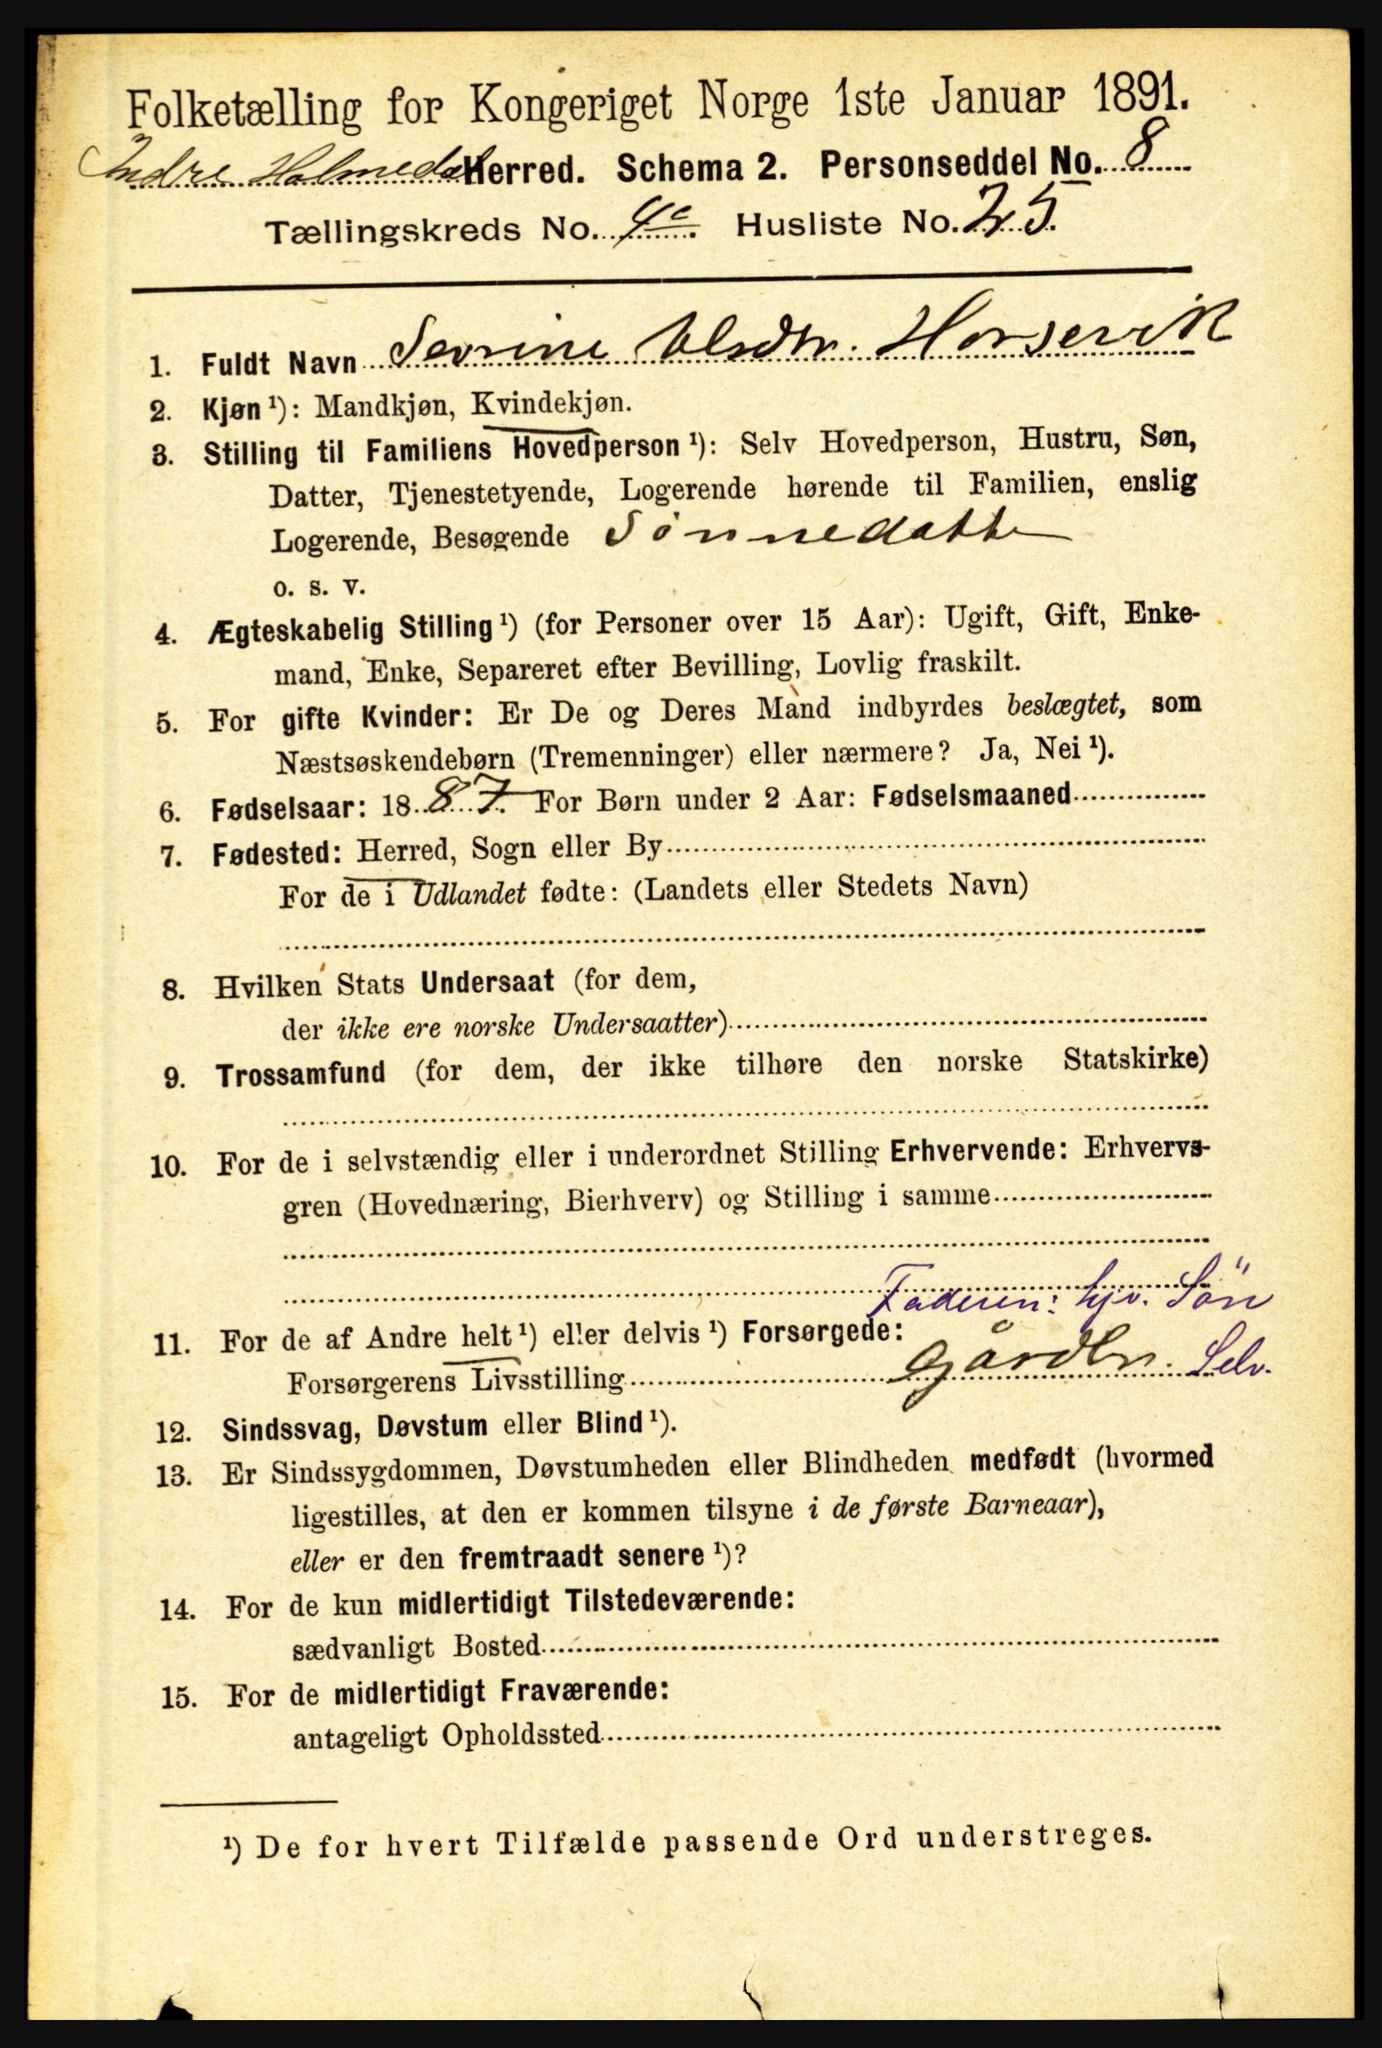 Folketælling for Kongeriget Norge 1ste Januar 1891.
Indre Holmedal Herred. Schema 2. Personseddel No. 8
Tællingskreds No. 4c. Husliste No. 25.
1. Fuldt Navn Sevrine Olsdtr. Horsevik
2. Kjøn ¹): Mandkjøn, Kvindekjøn.
3. Stilling til Familiens Hovedperson ¹): Selv Hovedperson, Hustru, Søn,
Datter, Tjenestetyende, Logerende hørende til Familien, enslig
Logerende, Besøgende Sønnedatte
o. s. v.
4. Ægteskabelig Stilling ¹) (for Personer over 15 Aar): Ugift, Gift, Enke-
mand, Enke, Separeret efter Bevilling, Lovlig fraskilt.
5. For gifte Kvinder: Er De og Deres Mand indbyrdes beslægtet, som
Næstsøskendebørn (Tremenninger) eller nærmere? Ja, Nei ¹).
6. Fødselsaar: 18 87. For Børn under 2 Aar: Fødselsmaaned
7. Fødested: Herred, Sogn eller By
For de i Udlandet fødte: (Landets eller Stedets Navn)
8. Hvilken Stats Undersaat (for dem,
der ikke ere norske Undersaatter)
9. Trossamfund (for dem, der ikke tilhøre den norske Statskirke)
10. For de i selvstændig eller i underordnet Stilling Erhvervende: Erhvervs-
gren (Hovednæring, Bierhverv) og Stilling i samme
Faderen: hjv. Sön
11. For de af Andre helt ¹) eller delvis ¹) Forsørgede:
Forsørgerens Livsstilling Gårdbr. Selv.
12. Sindssvag, Døvstum eller Blind ¹).
13. Er Sindssygdommen, Døvstumheden eller Blindheden medfødt (hvormed
ligestilles, at den er kommen tilsyne i de første Barneaar),
eller er den fremtraadt senere ¹)?
14. For de kun midlertidigt Tilstedeværende:
sædvanligt Bosted
15. For de midlertidigt Fraværende:
antageligt Opholdssted
¹) De for hvert Tilfælde passende Ord understreges.